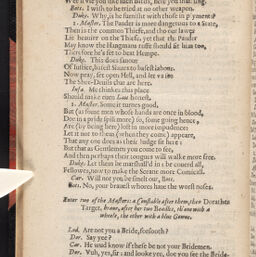 Bots. I wish to be tried at no other weapon.
Duke. Why, is he familiar with those in
2. Master. The Pandar is more dangerous to a State,
Then is the common Thiefe, and tho our lawes
Lie heavier on the Thiefe, yet that the Pandar
May know the Hangmans ruffe should fit him too,
Therefore he's set to beat Hempe.
Duke. This does savour
Of Justice, basest Slaves to basest labour.
Now pray, set open Hell, and let us see
The Shee-Devils that are here.
Infa. Me thinkes this place
Should make even Lais honest.
2. Master. Some it turnes good,
But (as some men whose hands are once in blood,
Doe in a pride spill more) so, some going hence,
Are (by being here) lost in more impudence:
Let it not to them (when they come) appeare,
That any one does as their Judge sit here:
But that as Gentlemen you come to see,
And then perhaps their tongues will walke more free.
Duke. Let them be marshall'd in: be couerd all,
Fellowes, now to make the Sceane more Comicall.
Car. Will not you be smelt out, Bots.
Bots. No, your bravest whores have the worst noses.
Enter two of the Masters: a Constable after them, then Dorathea
Target, brave, after her two Beadles, th'one with a
wheele, the other with a blue Gowne.
Lod. Are not you a Bride, forsooth?
Dor. Say yee?
Car. He wud know if these be not your Bridemen.
Dor. Vuh, yes, sir: and looke yee, doe you see the Bride-